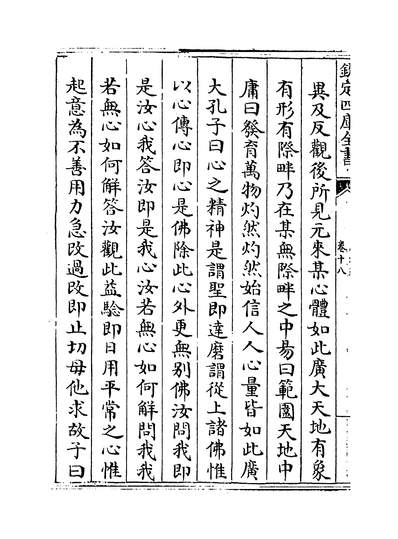 欽定四庫全書
卷十八
異及反觀後所見元來某心體如此廣大天地有象
有形有際畔乃在某無際畔之中易曰範圍天地中
庸曰發育萬物灼然灼然始信人人心量皆如此廣
大孔子曰心之精神是謂聖即達磨謂從上諸佛惟
以心傳心即心是佛除此心外更無别佛汝問我即
是汝心我答汝即是我心汝若無心如何解問我我
若無心如何解答汝觀此益驗即日用平常之心惟
起意為不善用力急改過改即止切毋他求故子曰